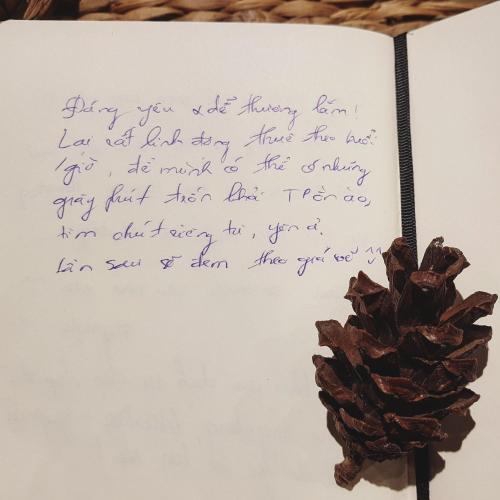 Đáng yêu & dễ thương lắm!
Lại rất linh động thuê theo buổi
/giờ, để mình có thể có những
giây phút trốn khỏi TP ồn ào,
tìm chút riêng tư, yên ả.
Lần sau sẽ đem theo giá vẽ ^^